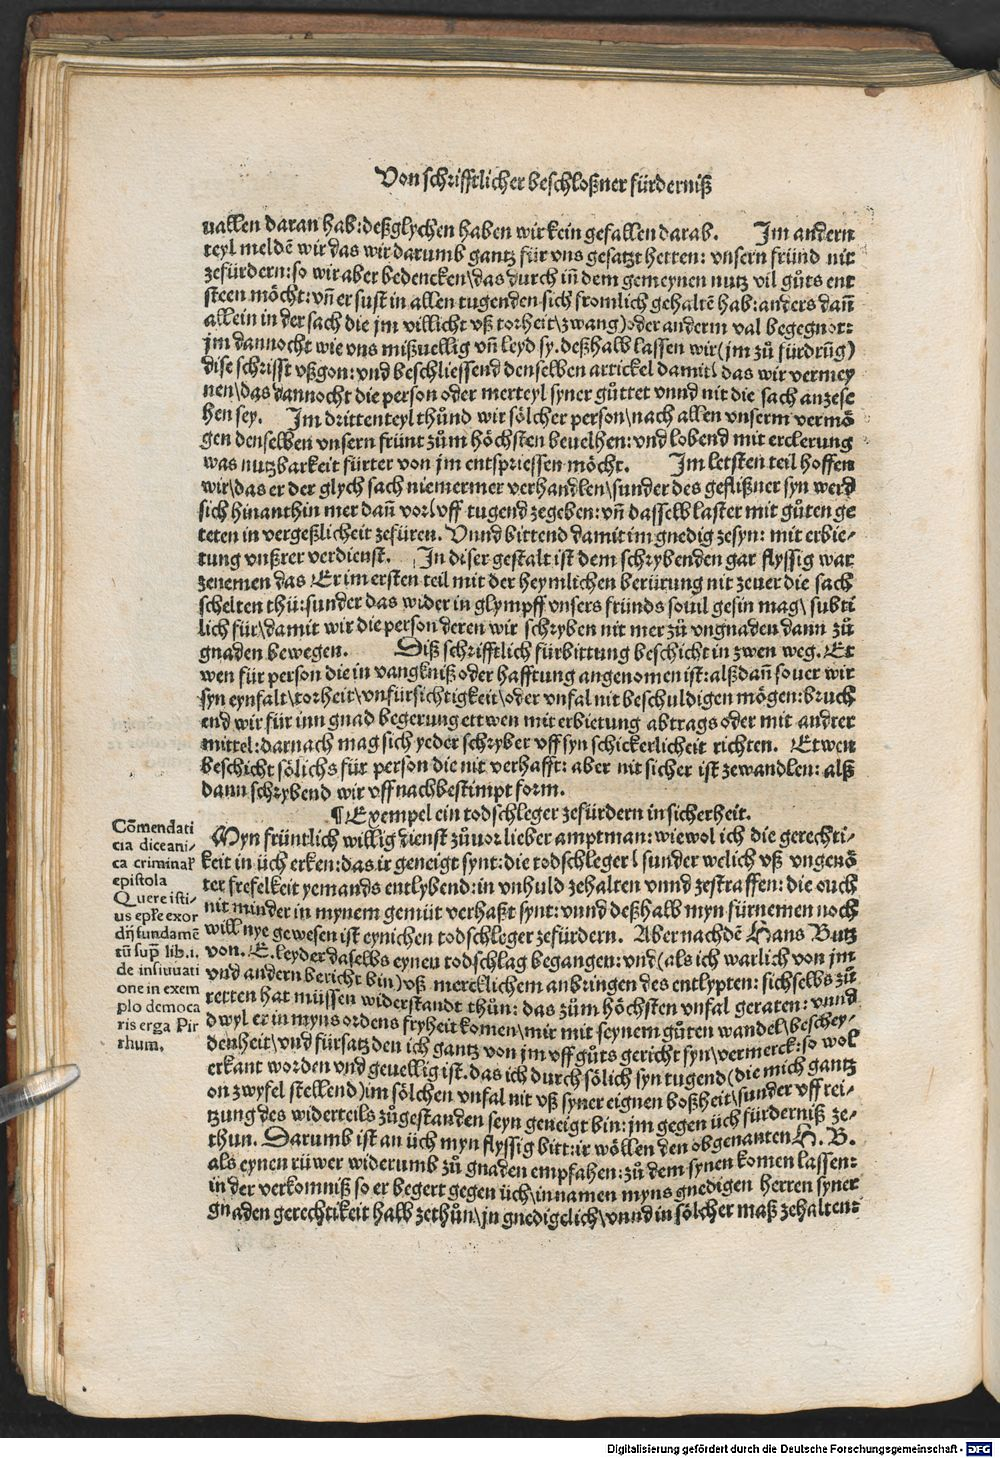 Von schrifftlicher beschloßner fürderniß
uallen daran hab: deßglychen haben wir kein gefallen darab. Im andern
teyl meldē wir das wir darumb gantz für vns gesatzt hetten: vnsern fründ nit
zefürdern: so wir aber bedencken\das durch iñ dem gemeynen nutz vil gůts ent
steen möcht: vñ er sust in allen tugenden sich fromlich gehaltē hab: anders dañ
allein in der sach die jm villicht vß torheit\zwang) oder anderm val begegnot:
jm dannocht wie vns mißuellig vñ leyd sy. deßhalb lassen wir (jm zů fürdrũg)
dise schrifft vßgon: vnd beschliessend denselben artickel damit\ das wir vermey
nen\das dannocht die person oder merteyl syner güttet vnnd nit die sach anzese
hen sey. Im dritten teyl thůnd wir sölcher person\nach allen vnserm vermö
gen denselben vnsern frünt zům höchsten beuelhen: vnd lobend mit erclerung
was nutzbarkeit fürter von jm entspriessen möcht. Im letsten teil hoffen
wir\das er der glych sach niemermer verhandlen\sunder des geflißner syn werd
sich hinanthin mer dañ vor\vff tugend zegeben: vñ dasselb laster mit gůten ge
teten in vergeßlicheit zefüren. Vnnd bittend damit im gnedig zesyn: mit erbie⸗
tung vnßrer verdienst. In diser gestalt ist dem schrybenden gar flyssig war
zenemen das Er im ersten teil mit der heymlichen berürung nit zeuer die sach
schelten thü: sunder das wider in glympff vnsers fründs souil gesin mag\ subti
lich für\damit wir die person deren wir schryben nit mer zů vngnaden dann zů
gnaden bewegen. Diß schrifftlich fürbittung beschicht in zwen weg. Et
wen für person die in vangkniß oder hafftung angenomen ist: alß dañ souer wir
syn eynfalt\torheit\vnfürsichtigkeit\oder vnfal nit beschuldigen mögen: bruch
end wir für inn gnad begerung ettwen mit erbietung abtrags oder mit andrer
mittel: darnach mag sich yeder schryber vff syn schickerlicheit richten. Etwen
beschicht sölichs für person die nit verhafft: aber nit sicher ist zewandlen: alß
dann schrybend wir vff nachbestimpt form.
¶ Exempel ein todschleger zefürdern in sicherheit.
Myn früntlich willig dienst zůuor lieber amptman: wiewol ich die gerechti⸗
keit in üch erken: das ir geneigt synt: die todschleger\ sunder welich vß vngenö
ter frefelkeit yemands entlybend: in vnhuld zehalten vnnd zestraffen: die ouch
nit minder in mynem gemüt verhaßt synt: vnnd deßhalb myn fürnemen noch
will nye gewesen ist eynichen todschleger zefürdern. Aber nachdē Hans Butz
von. E. leyder daselbs eynen todschlag begangen: vnd (als ich warlich von jm
vnd andern bericht bin) vß mercklichem anbringen des entlypten: sich selbs zů
retten hat müssen widerstandt thůn: das zům höchsten vnfal geraten: vnnd
dwyl er in myns ordens fryheit komen\mir mit seynem gůten wandel\beschey⸗
denheit\vnd fürsatz den ich gantz von jm vff gůts gericht syn\vermerck: so wol
erkant worden vnd geuellig ist. das ich durch sölich syn tugend (die mich gantz
on zwyfel stellend) im sölchen vnfal nit vß syner eignen boßheit\sunder vff rei⸗
tzung des widerteils zůgestanden seyn geneigt bin: jm gegen üch fürderniß ze⸗
thun. Darumb ist an üch myn flyssig bitt: ir wöllen den obgenanten H. B.
als eynen rüwer widerumb zů gnaden empfahen: zů dem synen komen lassen:
in der verkomniß so er begert gegen üch\in namen myns gnedigen herren syner
gnaden gerechtikeit halb zethůn\jn gnedigelich\vnnd in sölcher maß zehalten:
Cōmendati
cia diceani⸗
ca criminaƚ
epistola
Quere isti⸗
us epƚe exor
dij fundamē
tū sup̄ lib.i.
de insinuati
one in exem
plo democa
ris erga Pir
rhum.
Digitalisierung gefördert durch die Deutsche Forschungsgemeinschaft - DFG